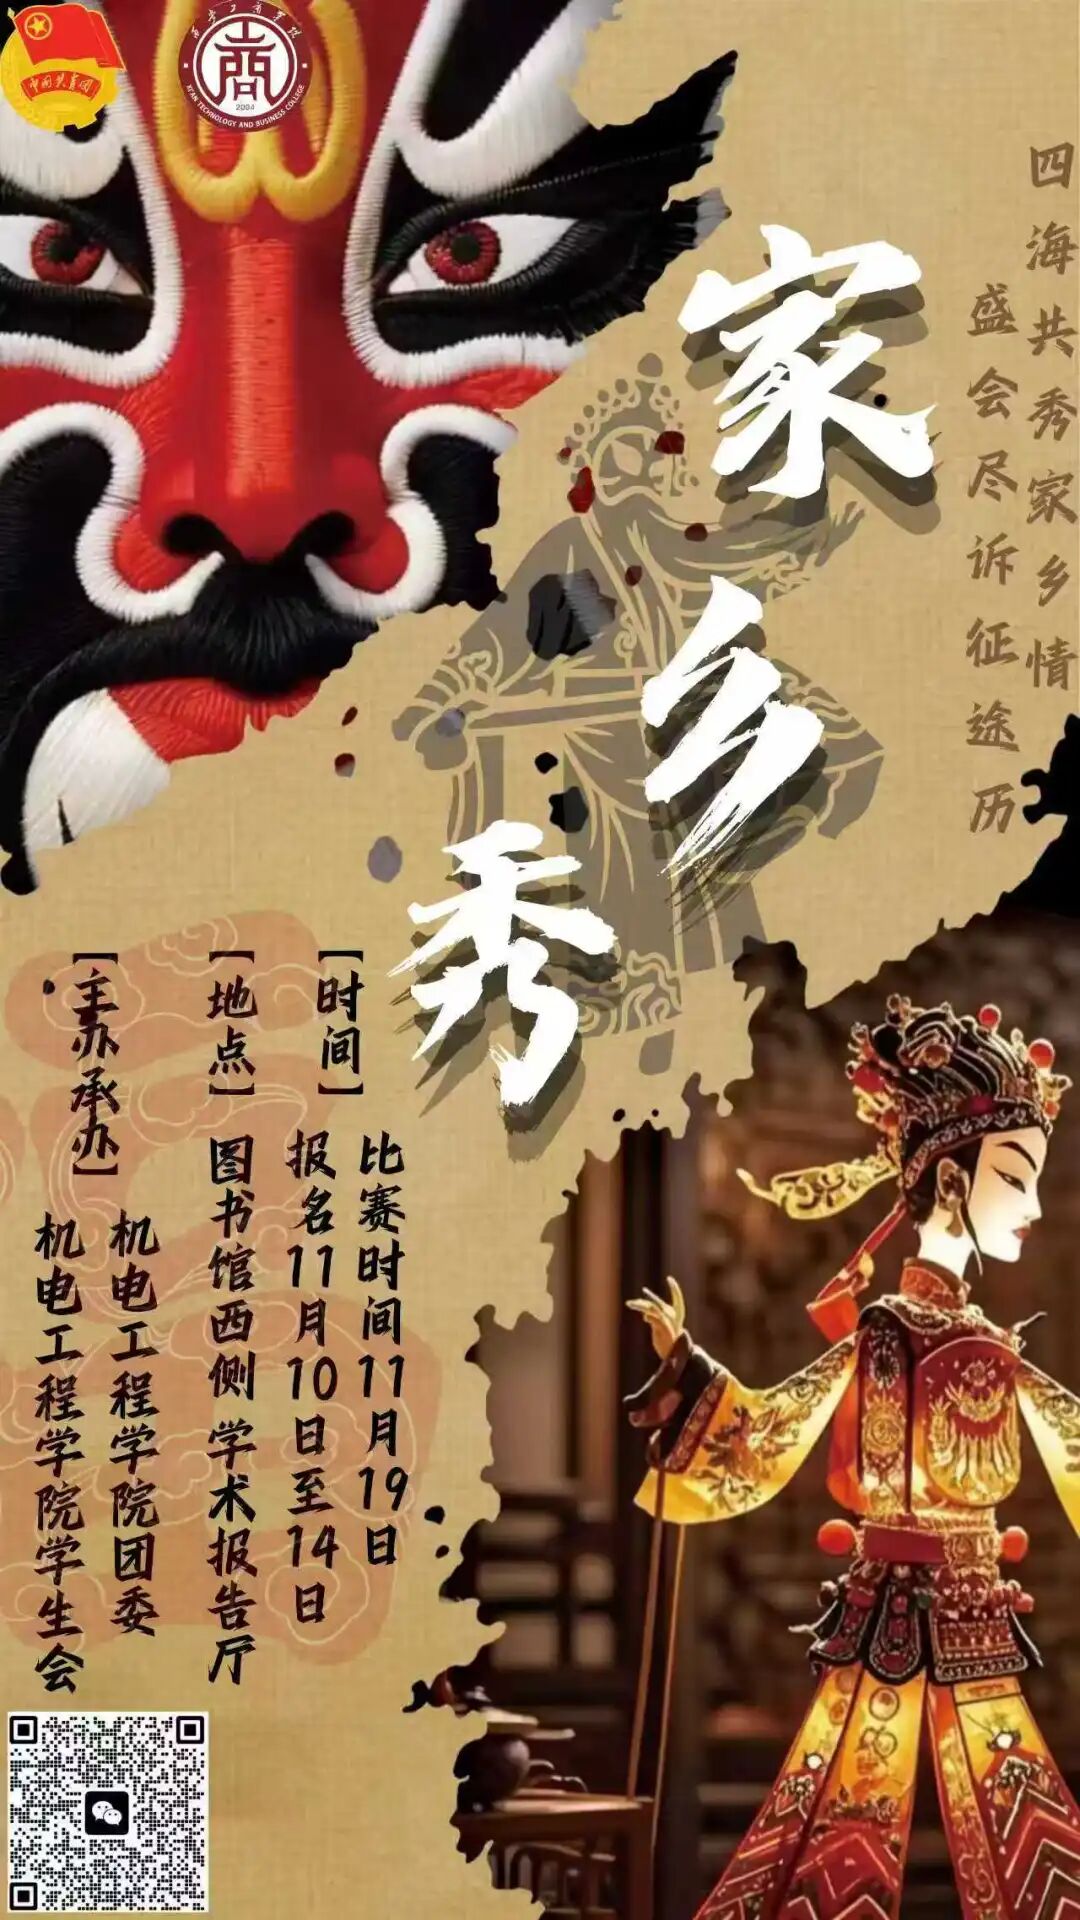 中国共青团
西安工商学院
商
2004
XI'AN TECHNOLOGY AND BUSINESS COLLEGE
四海共秀家乡情
盛会尽诉征途历
家乡秀
【时间】
比赛时间11月19日
报名11月10日至14日
【地点】
图书馆西侧学术报告厅
【主办承办】
机电工程学院团委
机电工程学院学生会